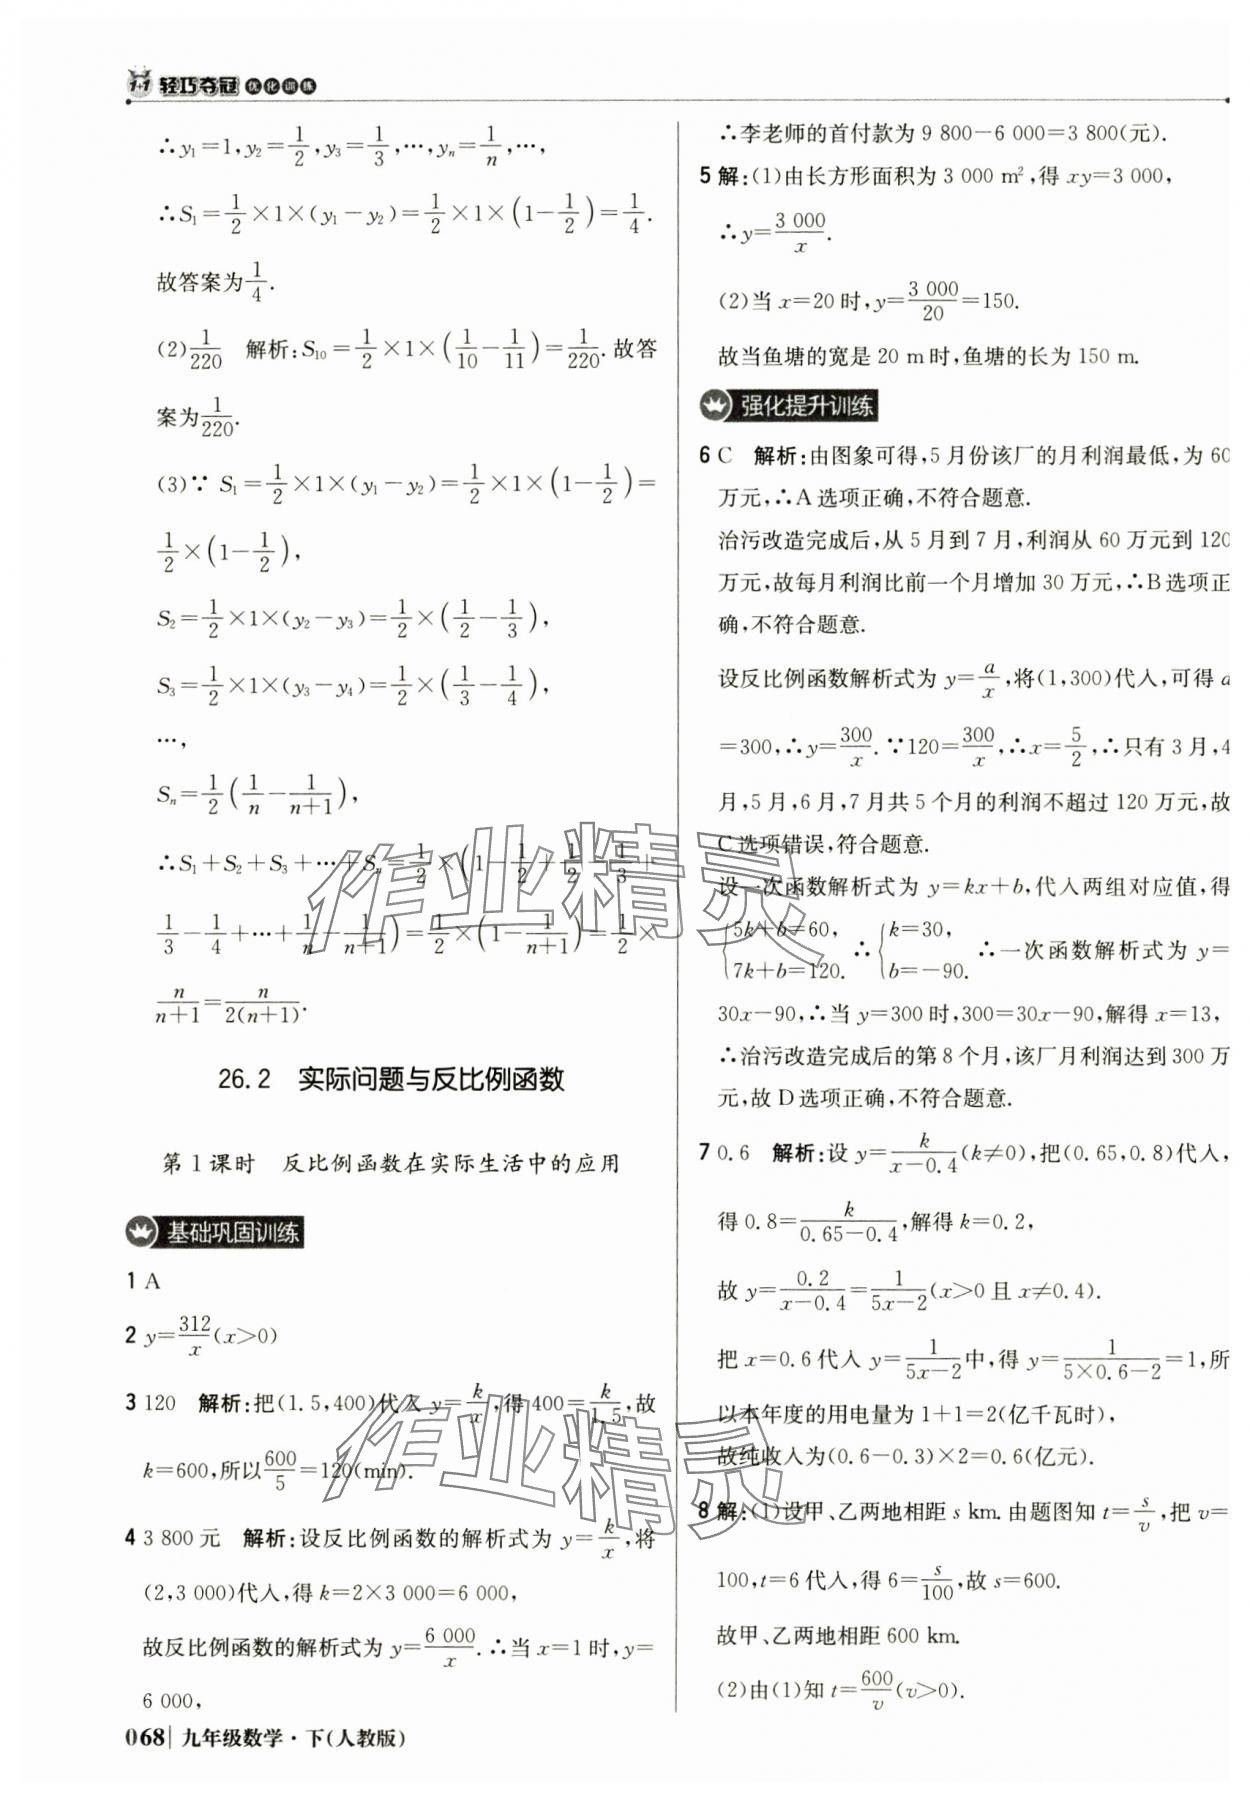 1+1 轻巧夺冠 优化训练
∴y₁=1,y₂=1/2,y₃=1/3,…,yₙ=1/n,…,
∴S₁=1/2×1×(y₁-y₂)=1/2×1×(1-1/2)=1/4.
故答案为1/4.
(2)1/220 解析:S₁₀=1/2×1×(1/10-1/11)=1/220.故答
案为1/220.
(3)∵S₁=1/2×1×(y₁-y₂)=1/2×1×(1-1/2)=
1/2×(1-1/2),
S₂=1/2×1×(y₂-y₃)=1/2×(1/2-1/3),
S₃=1/2×1×(y₃-y₄)=1/2×(1/3-1/4),
…,
Sₙ=1/2(1/n-1/(n+1)),
∴S₁+S₂+S₃+…+Sₙ=1/2×(1-1/2+1/2-1/3+
1/3-1/4+…+1/n-1/(n+1))=1/2×(1-1/(n+1))=1/2×
n/(n+1)=n/(2(n+1)).
26.2 实际问题与反比例函数
第1课时 反比例函数在实际生活中的应用
基础巩固训练
1 A
2 y=312/x(x>0)
3 120 解析:把(1.5,400)代入y=k/x,得400=k/1.5,故
k=600,所以600/5=120(min).
4 3 800元 解析:设反比例函数的解析式为y=k/x,将
(2,3 000)代入,得k=2×3 000=6 000,
故反比例函数的解析式为y=6 000/x.∴当x=1时,y=
6 000,
068 九年级数学·下(人教版)
∴李老师的首付款为9 800-6 000=3 800(元).
5 解:(1)由长方形面积为3 000 m²,得xy=3 000,
∴y=3 000/x.
(2)当x=20时,y=3 000/20=150.
故当鱼塘的宽是20 m时,鱼塘的长为150 m.
强化提升训练
6 C 解析:由图象可得,5月份该厂的月利润最低,为60
万元,∴A选项正确,不符合题意.
治污改造完成后,从5月到7月,利润从60万元到120
万元,故每月利润比前一个月增加30万元,∴B选项正
确,不符合题意.
设反比例函数解析式为y=a/x,将(1,300)代入,可得a
=300,∴y=300/x.∵120=300/x,∴x=5/2,∴只有3月,4
月,5月,6月,7月共5个月的利润不超过120万元,故
C选项错误,符合题意.
设一次函数解析式为y=kx+b,代入两组对应值,得
{5k+b=60, 7k+b=120. ∴{k=30, b=-90. ∴一次函数解析式为y=
30x-90,∴当y=300时,300=30x-90,解得x=13,
∴治污改造完成后的第8个月,该厂月利润达到300万
元,故D选项正确,不符合题意.
7 0.6 解析:设y=k/(x-0.4)(k≠0),把(0.65,0.8)代入,
得0.8=k/(0.65-0.4),解得k=0.2,
故y=0.2/(x-0.4)=1/(5x-2)(x>0且x≠0.4).
把x=0.6代入y=1/(5x-2)中,得y=1/(5×0.6-2)=1,所
以本年度的用电量为1+1=2(亿千瓦时),
故纯收入为(0.6-0.3)×2=0.6(亿元).
8 解:(1)设甲、乙两地相距s km.由题图知t=s/v,把v=
100,t=6代入,得6=s/100,故s=600.
故甲、乙两地相距600 km.
(2)由(1)知t=600/v(v>0).
作业精灵
作业精灵